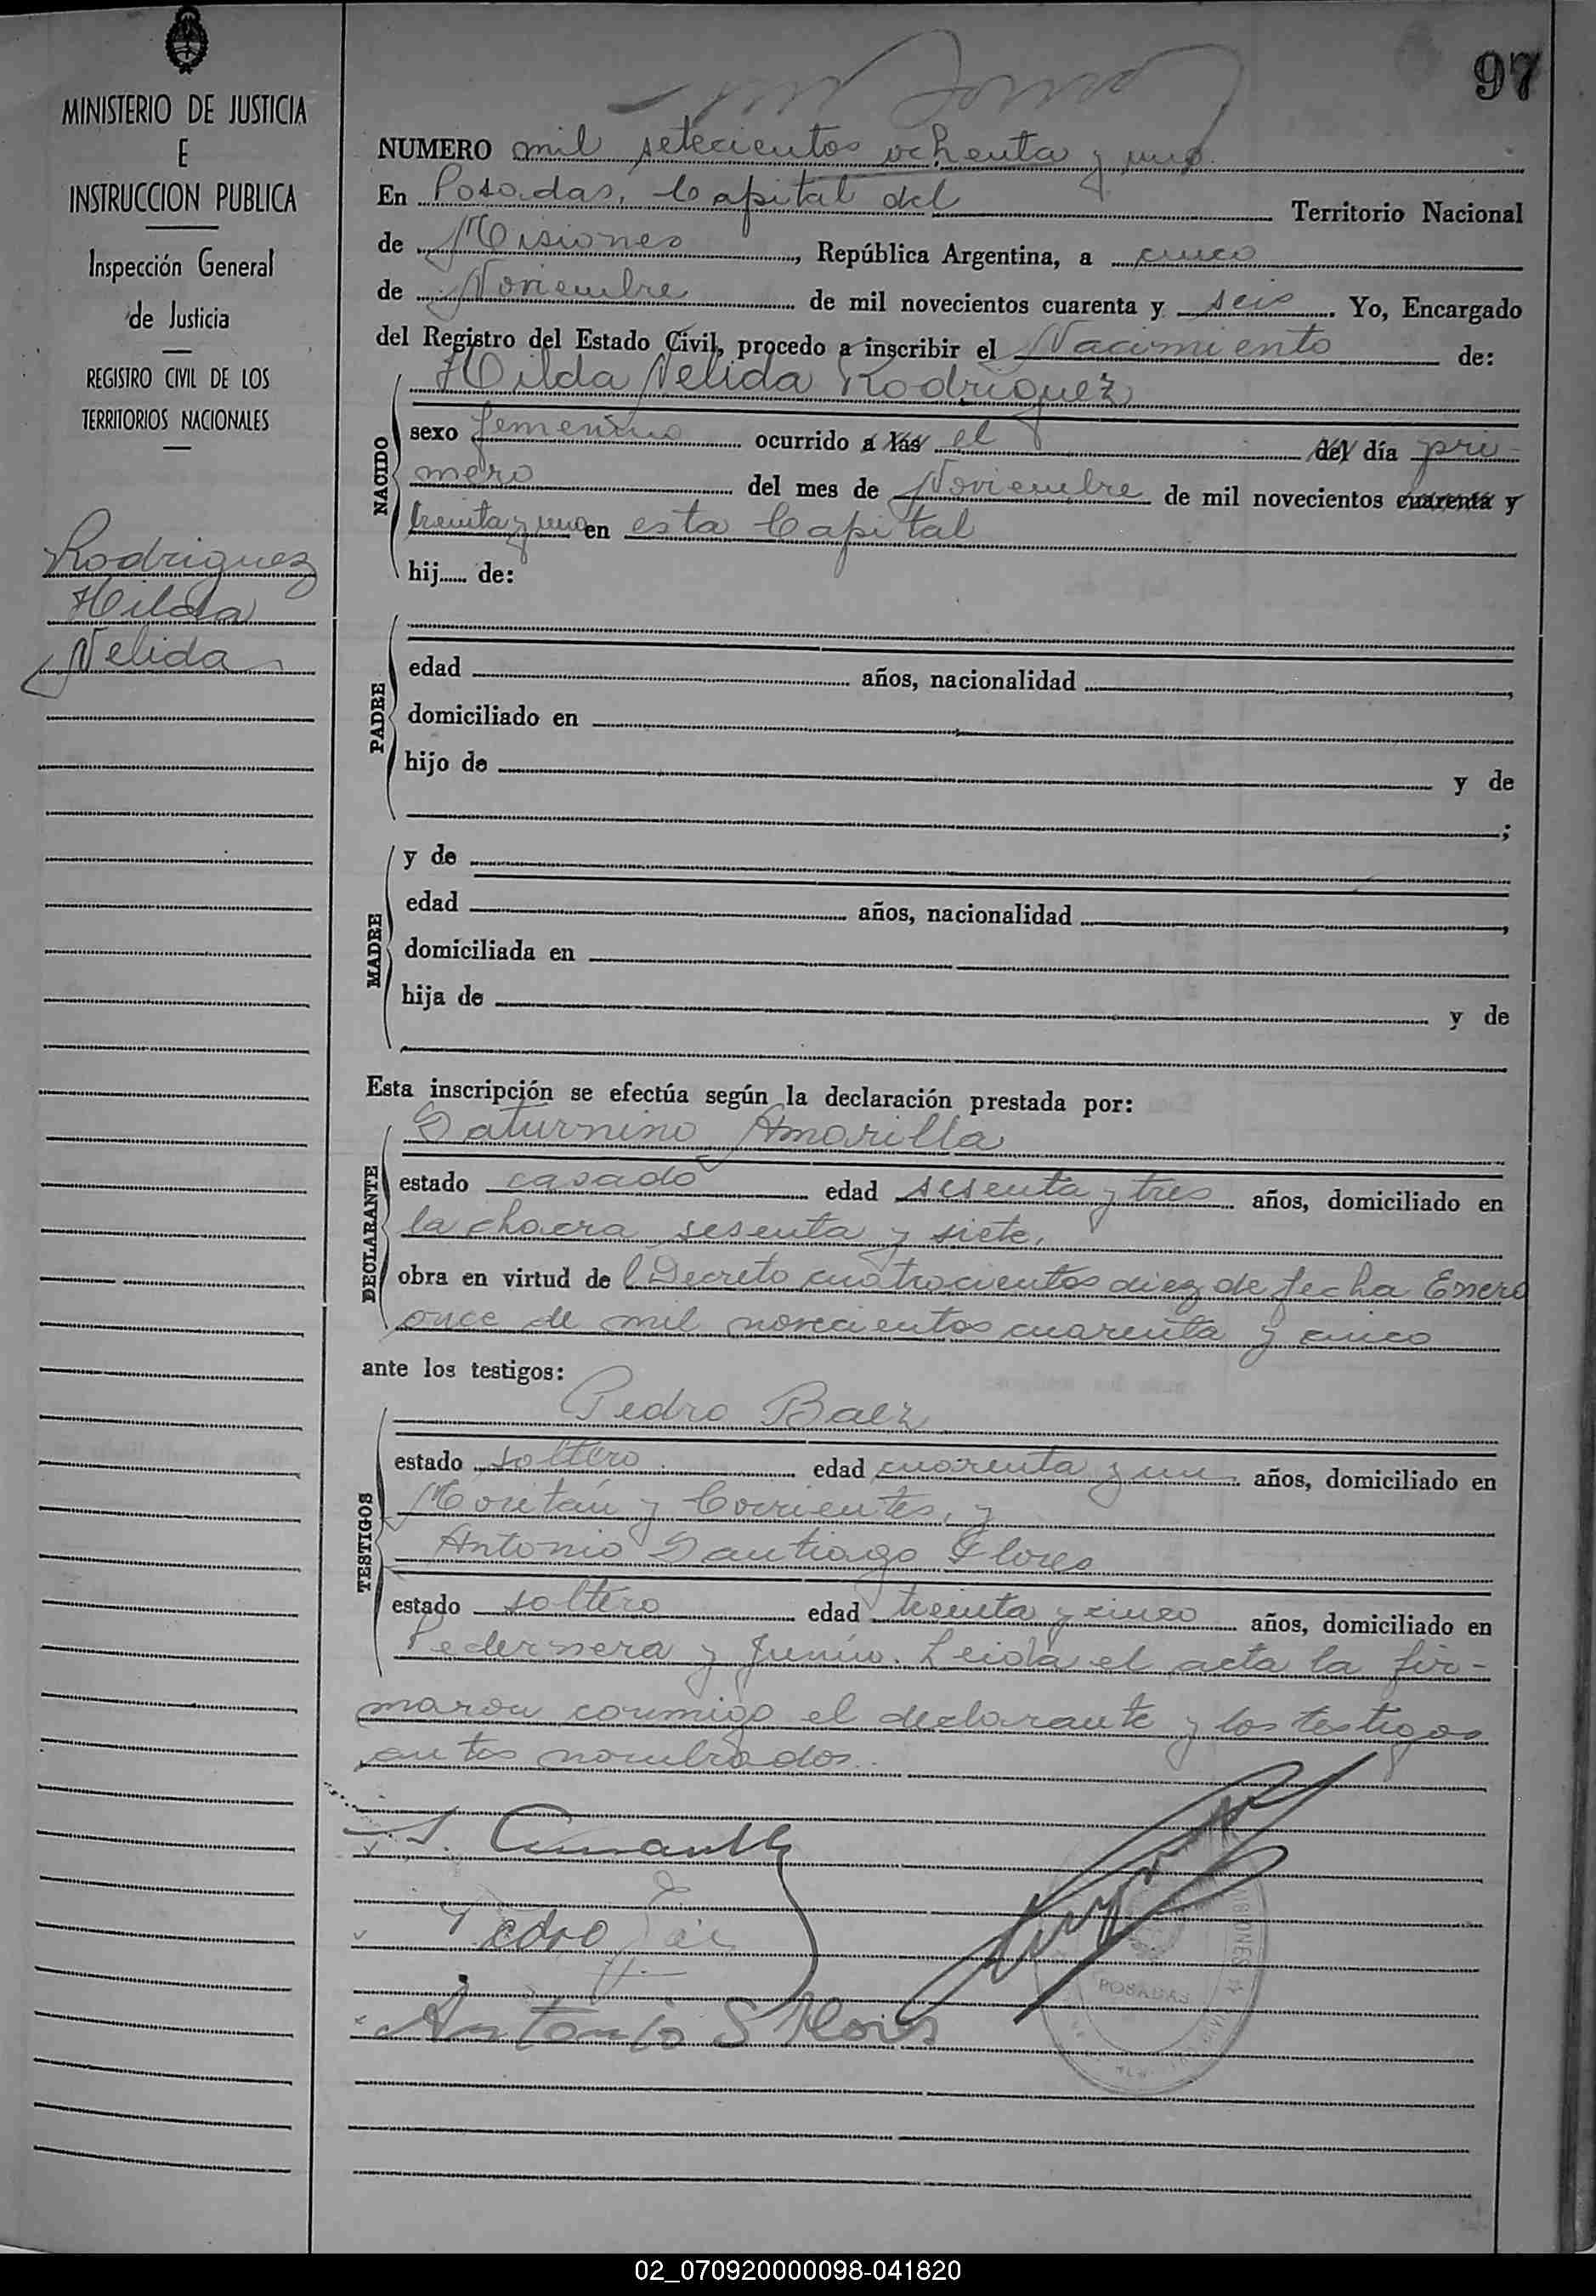 97
MINISTERIO DE JUSTICIA
E
INSTRUCCION PUBLICA
Inspección General
de Justicia
REGISTRO CIVIL DE LOS
TERRITORIOS NACIONALES
Rodriguez
Hilda
Nelida
NUMERO mil setecientos ochenta y uno
En Posadas, Capital del Territorio Nacional
de Misiones, República Argentina, a cinco
de Noviembre de mil novecientos cuarenta y seis. Yo, Encargado
del Registro del Estado Civil, procedo a inscribir el Nacimiento de:
NACIDO
Hilda Nelida Rodriguez
sexo femenino ocurrido a las el del día pri-
mero del mes de Noviembre de mil novecientos cuarenta y
treinta y uno en esta Capital
hij de:
PADRE
edad años, nacionalidad ,
domiciliado en
hijo de y de
;
MADRE
y de
edad años, nacionalidad ,
domiciliada en
hija de y de
Esta inscripción se efectúa según la declaración prestada por:
DECLARANTE
Saturnino Amarilla
estado casado edad sesenta y tres años, domiciliado en
la chacra sesenta y siete,
obra en virtud de l Decreto cuatrocientos diez de fecha Enero
once de mil novecientos cuarenta y cinco
ante los testigos:
TESTIGOS
Pedro Baez
estado soltero edad cuarenta y un años, domiciliado en
y Corrientes, y
Antonio Santiago Flores
estado soltero edad treinta y cinco años, domiciliado en
Pedernera y Junín. Leida el acta la fir-
maron conmigo el declarante y los testigos
antes nombrados.
S. Amarilla
Pedro
Antonio S Flores
MISIONES
POSADAS
02_070920000098-041820